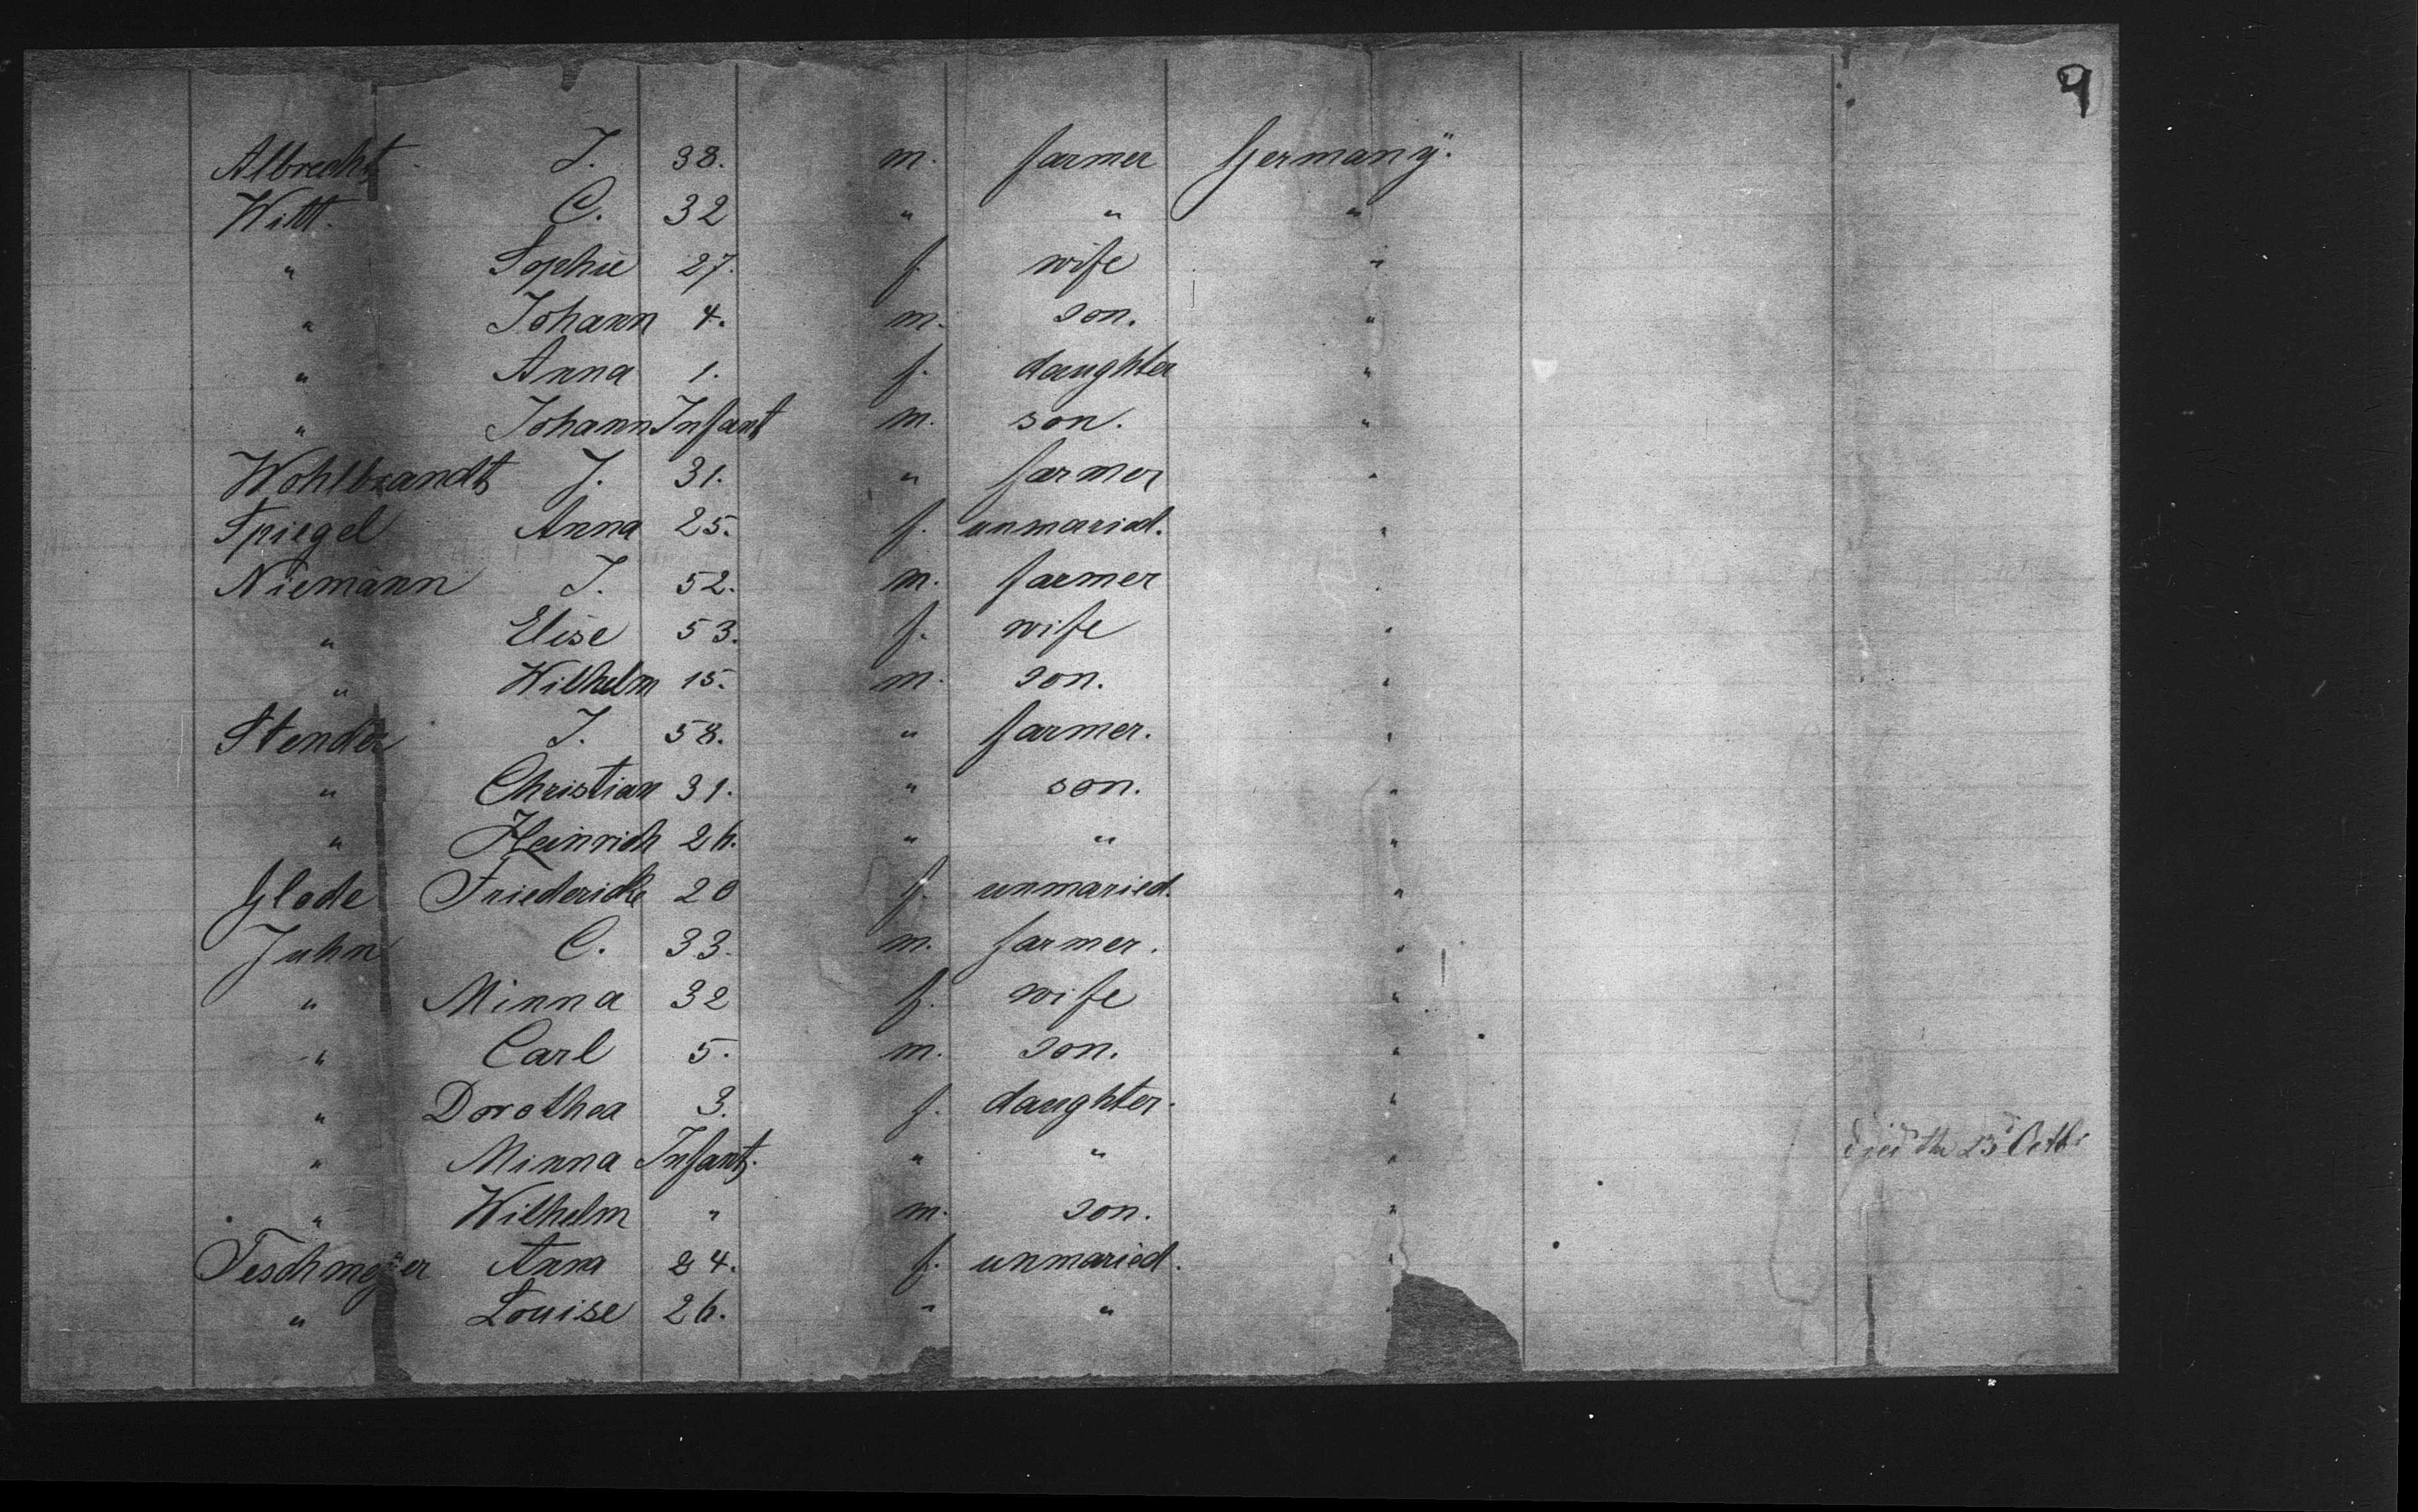 9
Albrecht J. 38. m. farmer Germany.
Witt. C. 32 " " "
" Sophie 27. f. wife "
" Johann 4. m. son. "
" Anna 1. f. daughter "
" Johann Infant m. son. "
Wohlbrandt J. 31. " farmer "
Spiegel Anna 25. f. unmaried. "
Niemann J. 52. m. farmer "
" Elise 53. f. wife "
" Wilhelm 15. m. son. "
Stender J. 58. " farmer. "
" Christian 31. " son. "
" Heinrich 26. " " "
Glode Friedericke 20 f. unmaried. "
Juhn C. 33. m. farmer. "
" Minna 32 f. wife "
" Carl 5. m. son. "
" Dorothea 3. f. daughter. "
" Minna Infant. " " " died the 23d Octbr
" Wilhelm " m. son. "
Teschmeÿer Anna 24. f. unmaried. "
" Louise 26. " " "